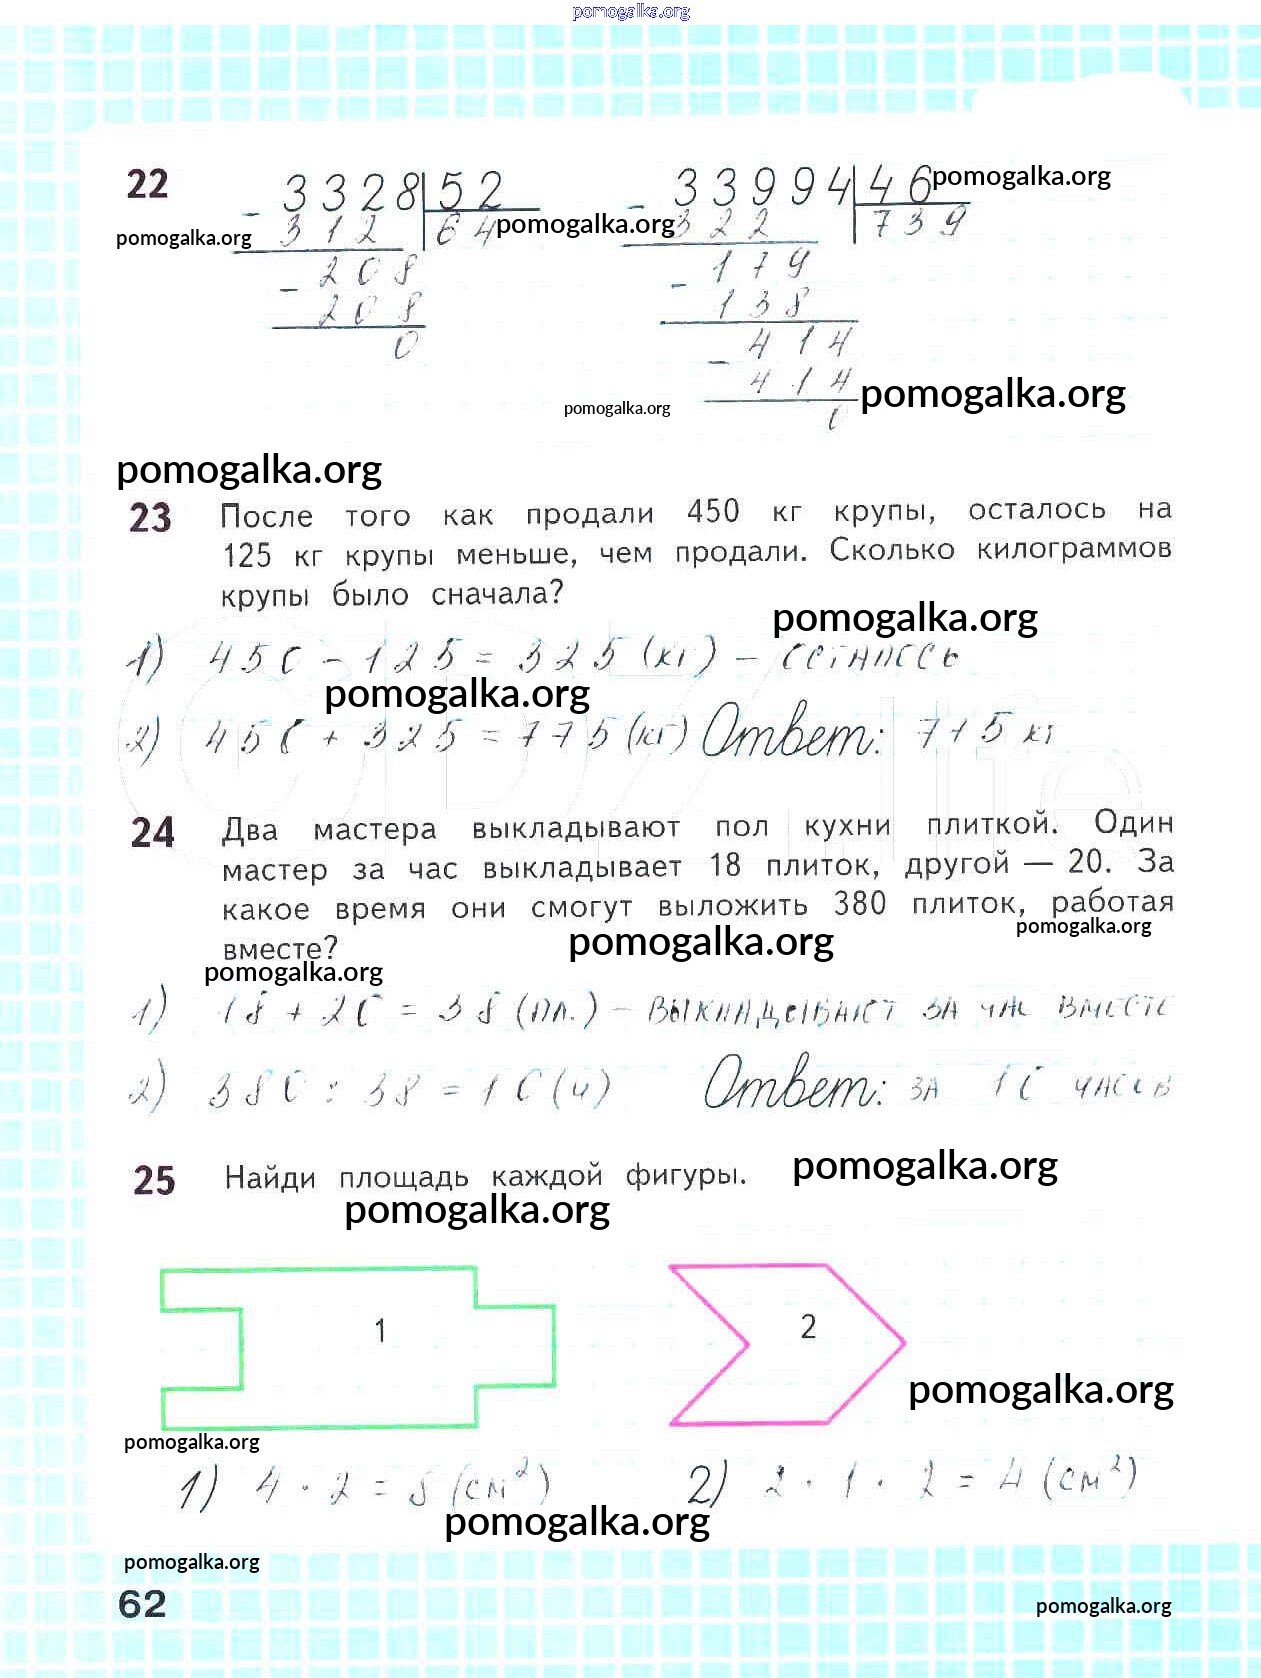 pomogalka.org
22
3328 52 33994 46 pomogalka.org
pomogalka.org 312 64 pomogalka.org 322 739
208 179
208 138
0 414
414 pomogalka.org
pomogalka.org 0
pomogalka.org
23 После того как продали 450 кг крупы, осталось на
125 кг крупы меньше, чем продали. Сколько килограммов
крупы было сначала?
pomogalka.org
1) 450 - 125 = 325 (кг) - осталось
pomogalka.org
2) 450 + 325 = 775 (кг) Ответ: 775 кг
24 Два мастера выкладывают пол кухни плиткой. Один
мастер за час выкладывает 18 плиток, другой — 20. За
какое время они смогут выложить 380 плиток, работая
pomogalka.org
вместе? pomogalka.org
pomogalka.org
1) 18 + 20 = 38 (пл.) - выкладывают за час вместе
2) 380 : 38 = 10 (ч) Ответ: за 10 часов
25 Найди площадь каждой фигуры. pomogalka.org
pomogalka.org
1 2
pomogalka.org
pomogalka.org
1) 4 · 2 = 8 (см²) 2) 2 · 1 · 2 = 4 (см²)
pomogalka.org
pomogalka.org
62 pomogalka.org